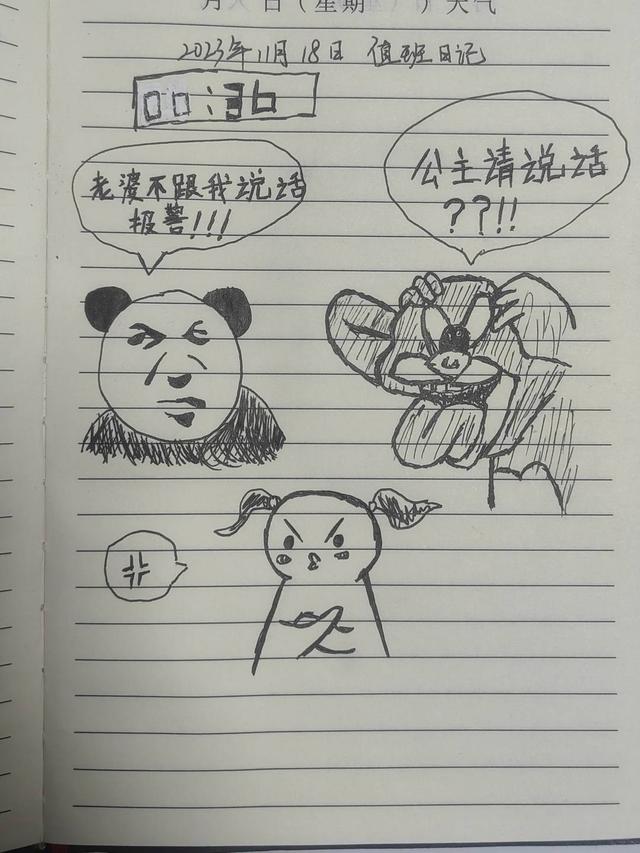 月 日（星期 ）天气
2023年11月18日 值班日记
00:36
老婆不跟我说话
报警!!!
公主请说话
??!!